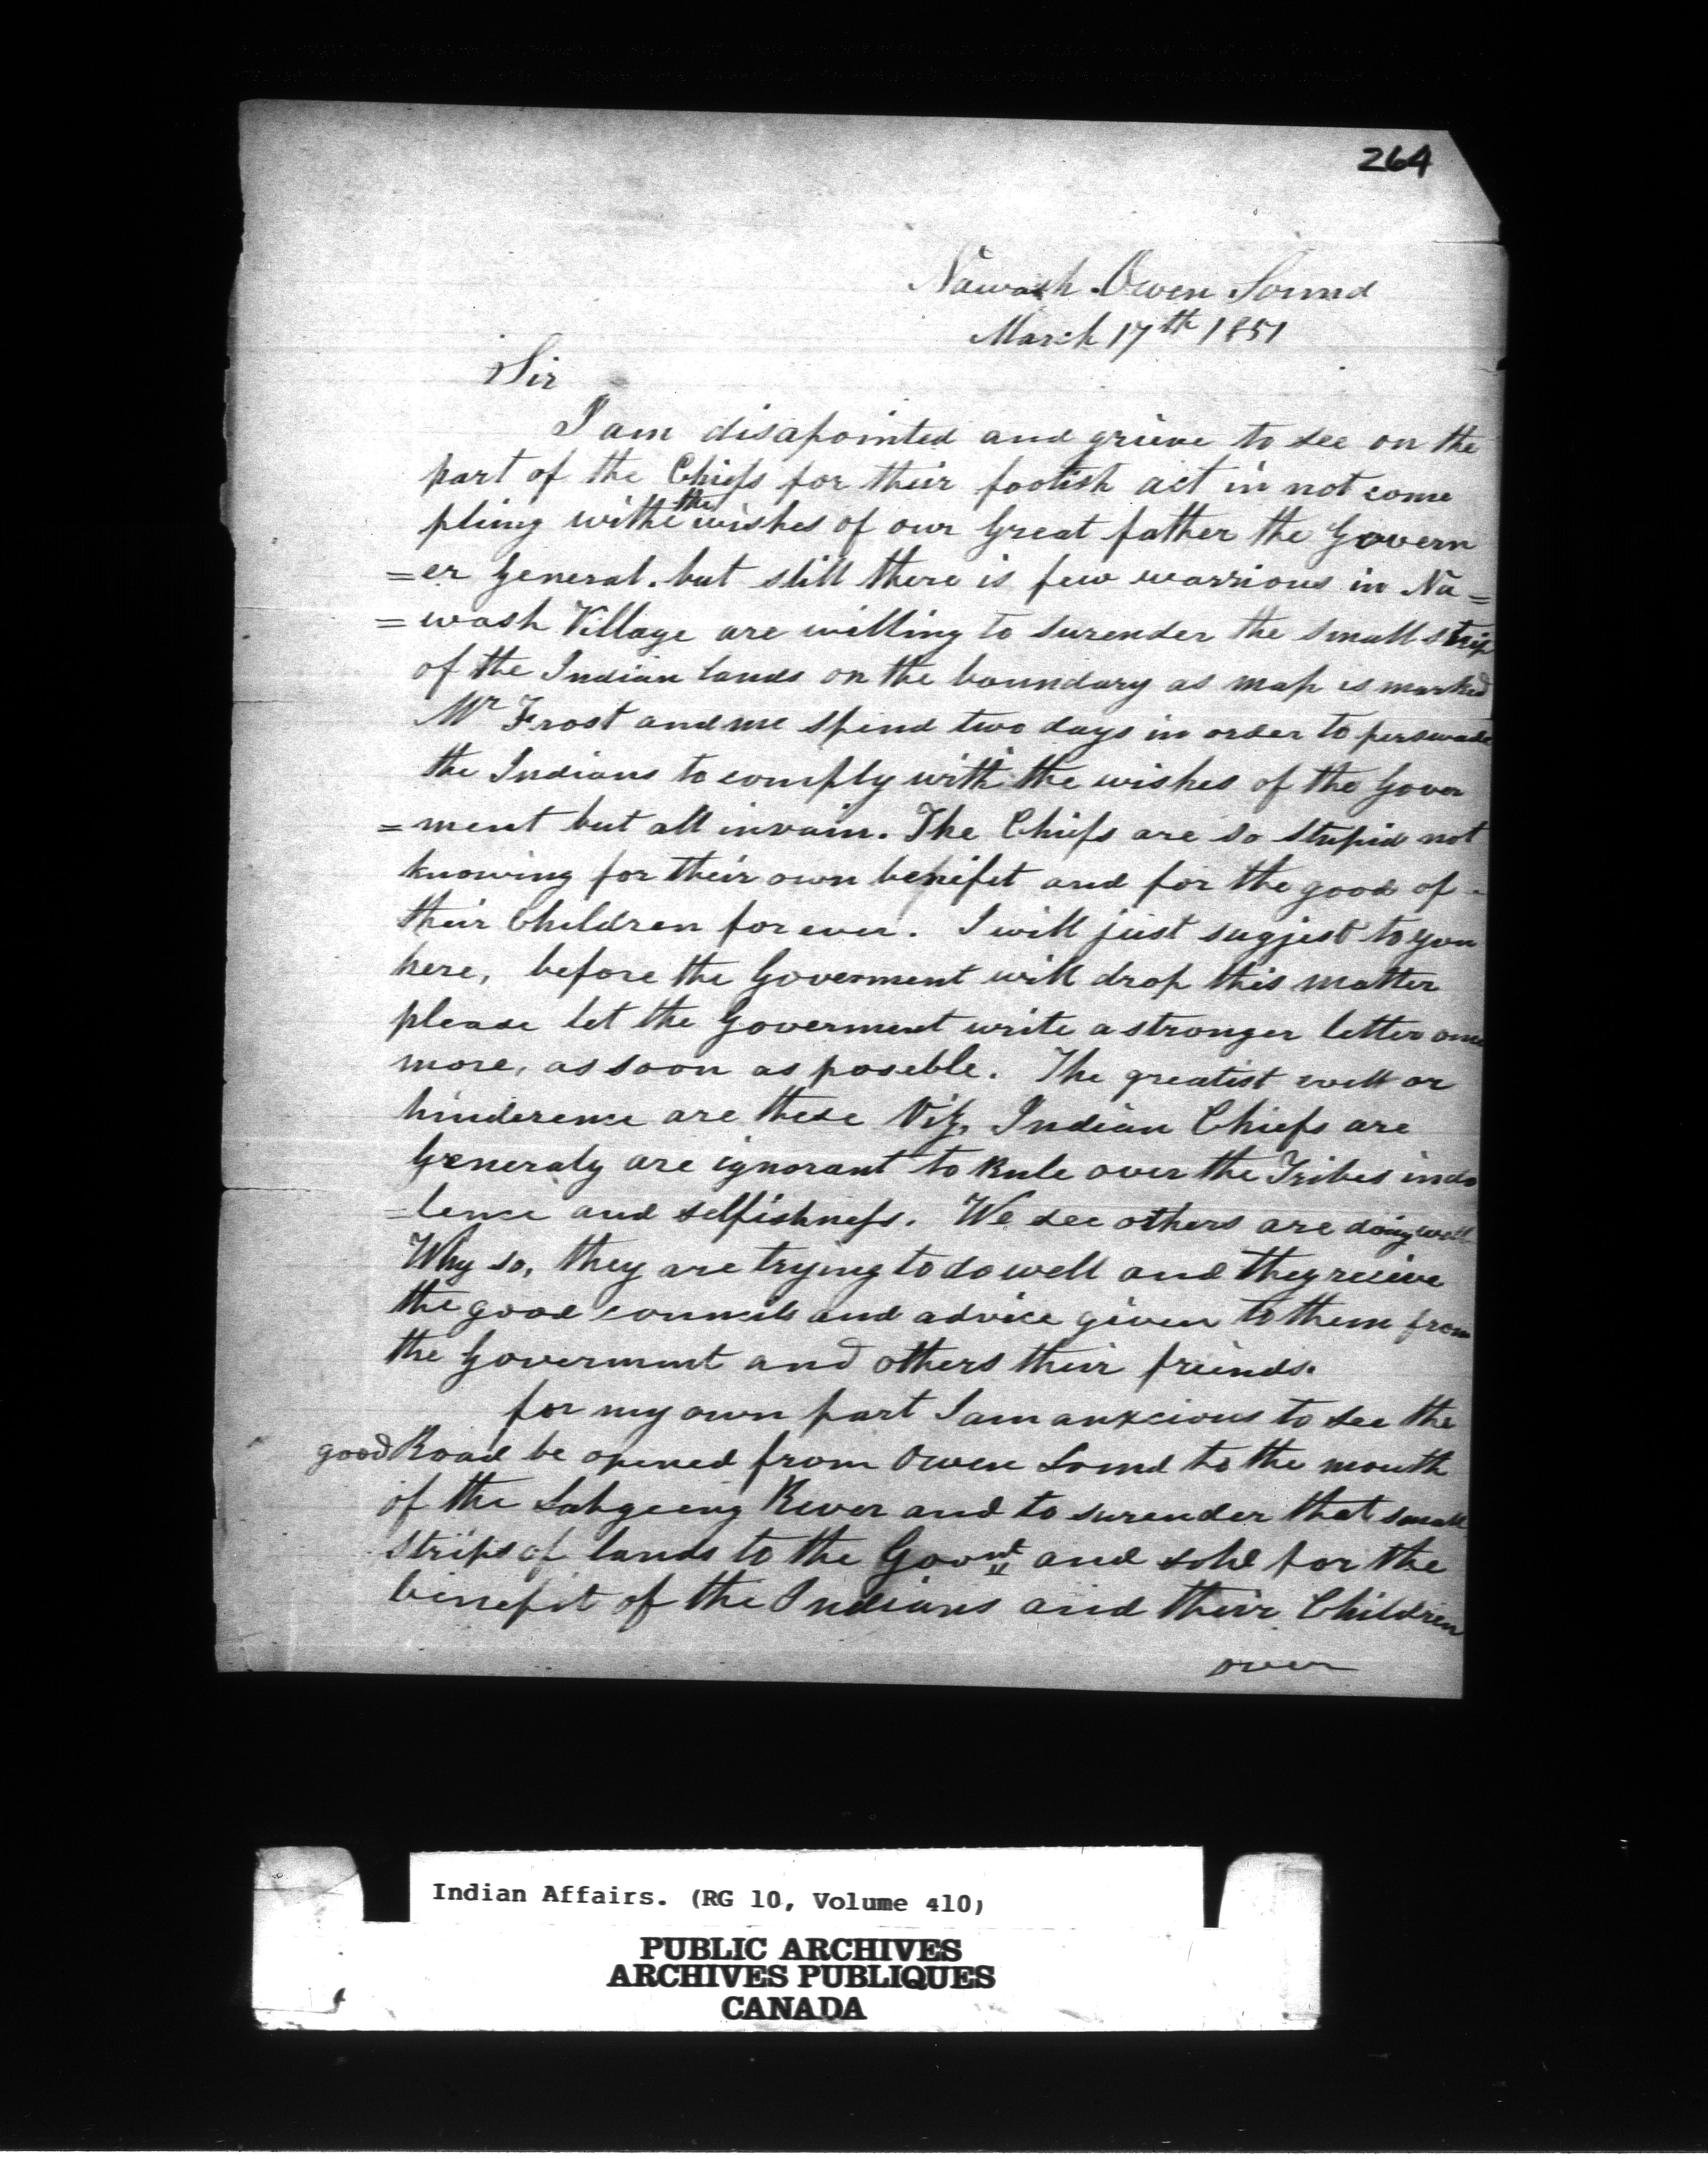 264
Nawash Owen Sound
March 17th 1851
Sir
I am disapointed and grieve to see on the
part of the Chiefs for their foolish act in not come
pling withe the wishes of our Great father the Govern
=er General. but still there is few warrious in Na=
=wash Village are willing to surender the small strip
of the Indian lands on the boundary as map is marked
Mr Frost and me spend two days in order to perswade
the Indians to comply with the wishes of the Gover
=ment but all invain. The Chiefs are so stupid not
knowing for their own benifet and for the good of
their Children for ever. I will just sugjest to you
here, before the Goverment will drop this matter
please let the Goverment write a stronger letter once
more, as soon as poseble. The greatist evill or
hinderence are these Viz, Indian Chiefs are
Generaly are ignorant to Rule over the Tribes indo
=lence and selfishness. We see others are doing well
Why so, they are trying to do well and they recieve
the good councils and advice given to them from
the Goverment and others their friends.
for my own part I am anxcious to see the
good Road be opened from Owen Sound to the mouth
of the Sahgeeng River and to surender that small
strips of lands to the Govnt and sold for the
benefit of the Indians and their Children
over
Indian Affairs. (RG 10, Volume 410)
PUBLIC ARCHIVES
ARCHIVES PUBLIQUES
CANADA